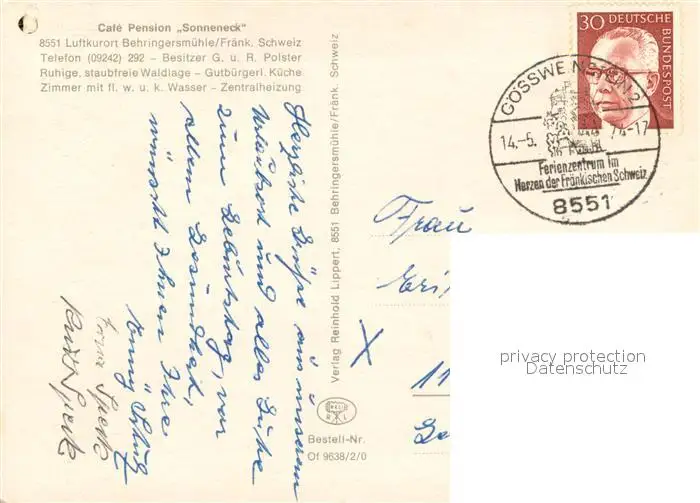 Café Pension „Sonneneck"
8551 Luftkurort Behringersmühle/Fränk. Schweiz
Telefon (09242) 292 – Besitzer G. u. R. Polster
Ruhige, staubfreie Waldlage – Gutbürgerl. Küche
Zimmer mit fl. w. u. k. Wasser – Zentralheizung
Herzliche Grüße aus unserem
Urlaubsort und alles Gute
zum Geburtstag, vor
allem Gesundheit,
wünscht Ihnen Ihre
Verlag Reinhold Lippert, 8551 Behringersmühle/Fränk. Schweiz
Bestell-Nr.
Of 9638/2/0
30 DEUTSCHE
BUNDESPOST
GÖSSWEINSTEIN 2
14.-5. 74-17
Ferienzentrum im
Herzen der Fränkischen Schweiz
8551
Frau
11
privacy protection
Datenschutz